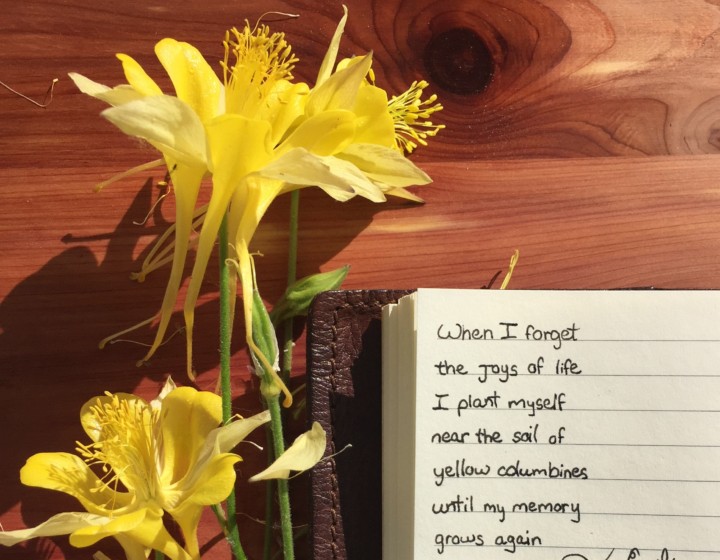 When I forget
the joys of life
I plant myself
near the soil of
yellow columbines
until my memory
grows again